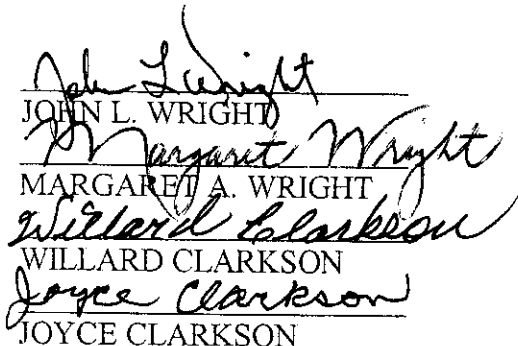 John L Wright
JOHN L. WRIGHT
Margaret Wright
MARGARET A. WRIGHT
Willard Clarkson
WILLARD CLARKSON
Joyce Clarkson
JOYCE CLARKSON